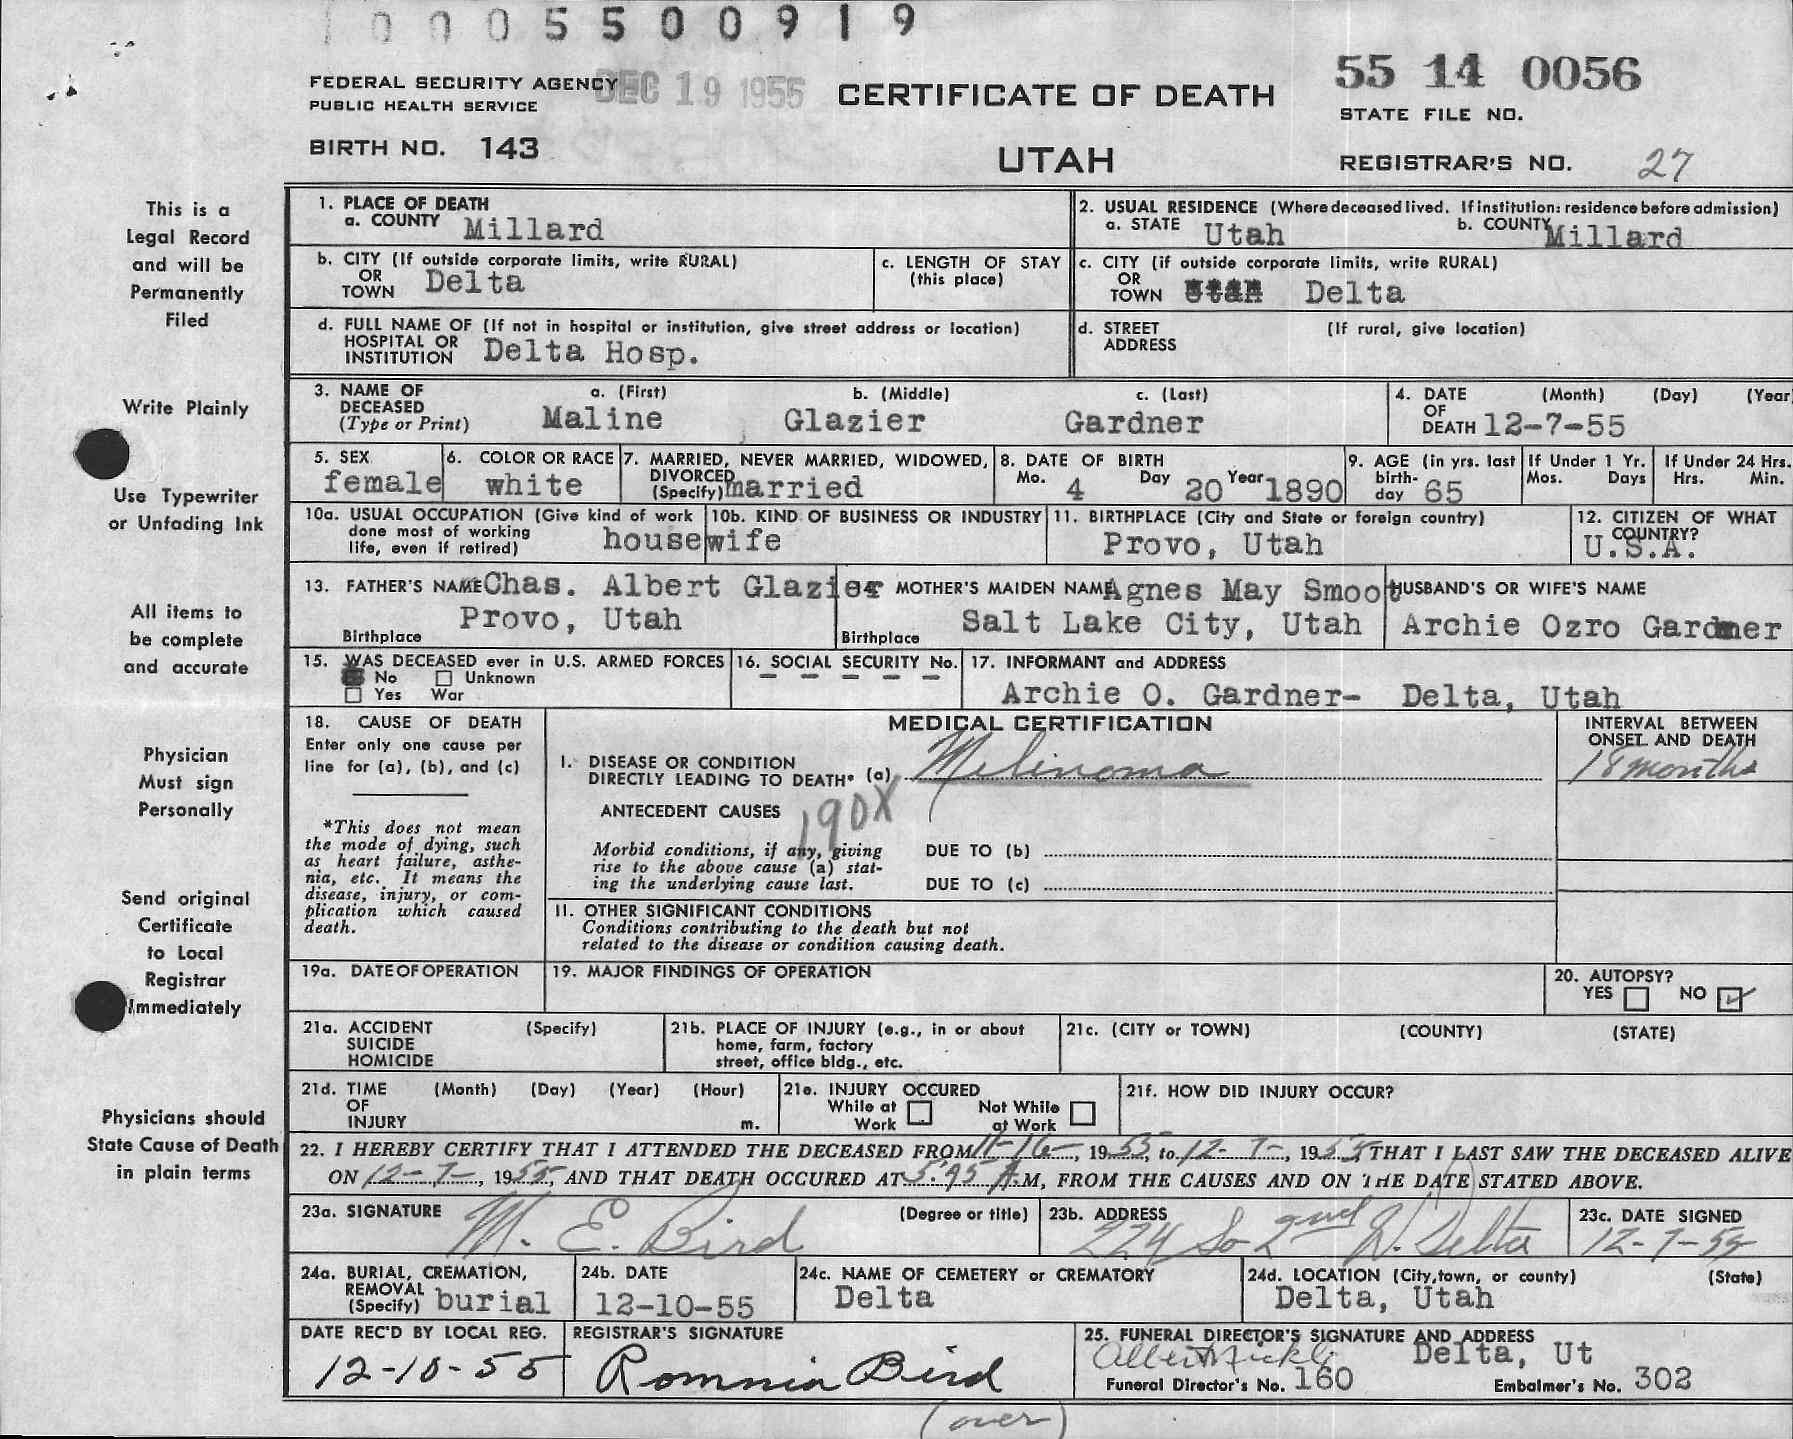 0005500919
FEDERAL SECURITY AGENCY
PUBLIC HEALTH SERVICE
DEC 19 1955
CERTIFICATE OF DEATH
UTAH
55 14 0056
STATE FILE NO.
BIRTH NO. 143
REGISTRAR'S NO. 27
This is a
Legal Record
and will be
Permanently
Filed
Write Plainly
Use Typewriter
or Unfading Ink
All items to
be complete
and accurate
Physician
Must sign
Personally
Send original
Certificate
to Local
Registrar
Immediately
Physicians should
State Cause of Death
in plain terms
1. PLACE OF DEATH
a. COUNTY Millard
2. USUAL RESIDENCE (Where deceased lived. If institution: residence before admission)
a. STATE Utah b. COUNTY Millard
b. CITY (If outside corporate limits, write RURAL)
OR
TOWN Delta
c. LENGTH OF STAY
(this place)
c. CITY (if outside corporate limits, write RURAL)
OR
TOWN Delta
d. FULL NAME OF (If not in hospital or institution, give street address or location)
HOSPITAL OR
INSTITUTION Delta Hosp.
d. STREET (If rural, give location)
ADDRESS
3. NAME OF a. (First) b. (Middle) c. (Last)
DECEASED
(Type or Print) Maline Glazier Gardner
4. DATE (Month) (Day) (Year
OF
DEATH 12-7-55
5. SEX
female
6. COLOR OR RACE
white
7. MARRIED, NEVER MARRIED, WIDOWED,
DIVORCED
(Specify) married
8. DATE OF BIRTH
Mo. 4 Day 20 Year 1890
9. AGE (in yrs. last
birth-
day 65
If Under 1 Yr.
Mos. Days
If Under 24 Hrs.
Hrs. Min.
10a. USUAL OCCUPATION (Give kind of work
done most of working
life, even if retired) housewife
10b. KIND OF BUSINESS OR INDUSTRY
11. BIRTHPLACE (City and State or foreign country)
Provo, Utah
12. CITIZEN OF WHAT
COUNTRY?
U.S.A.
13. FATHER'S NAME Chas. Albert Glazier
Provo, Utah
Birthplace
MOTHER'S MAIDEN NAME Agnes May Smoot
Salt Lake City, Utah
Birthplace
HUSBAND'S OR WIFE'S NAME
Archie Ozro Gardner
15. WAS DECEASED ever in U.S. ARMED FORCES
No Unknown
Yes War
16. SOCIAL SECURITY No.
– – – – –
17. INFORMANT and ADDRESS
Archie O. Gardner- Delta, Utah
18. CAUSE OF DEATH
Enter only one cause per
line for (a), (b), and (c)
*This does not mean
the mode of dying, such
as heart failure, asthe-
nia, etc. It means the
disease, injury, or com-
plication which caused
death.
MEDICAL CERTIFICATION
I. DISEASE OR CONDITION
DIRECTLY LEADING TO DEATH* (a) Melinoma
190X
ANTECEDENT CAUSES
Morbid conditions, if any, giving
rise to the above cause (a) stat-
ing the underlying cause last.
DUE TO (b)
DUE TO (c)
II. OTHER SIGNIFICANT CONDITIONS
Conditions contributing to the death but not
related to the disease or condition causing death.
INTERVAL BETWEEN
ONSET AND DEATH
18 months
19a. DATE OF OPERATION
19. MAJOR FINDINGS OF OPERATION
20. AUTOPSY?
YES NO
21a. ACCIDENT (Specify)
SUICIDE
HOMICIDE
21b. PLACE OF INJURY (e.g., in or about
home, farm, factory
street, office bldg., etc.
21c. (CITY or TOWN) (COUNTY) (STATE)
21d. TIME (Month) (Day) (Year) (Hour)
OF
INJURY m.
21e. INJURY OCCURED
While at Not While
Work at Work
21f. HOW DID INJURY OCCUR?
22. I HEREBY CERTIFY THAT I ATTENDED THE DECEASED FROM 11-16-, 1955, to 12-7-, 1955, THAT I LAST SAW THE DECEASED ALIVE
ON 12-7-, 1955, AND THAT DEATH OCCURED AT A.M, FROM THE CAUSES AND ON THE DATE STATED ABOVE.
23a. SIGNATURE (Degree or title)
M. E. Bird
23b. ADDRESS
224 So 2nd W. Delta
23c. DATE SIGNED
12-7-55
24a. BURIAL, CREMATION,
REMOVAL
(Specify) burial
24b. DATE
12-10-55
24c. NAME OF CEMETERY or CREMATORY
Delta
24d. LOCATION (City, town, or county) (State)
Delta, Utah
DATE REC'D BY LOCAL REG.
12-10-55
REGISTRAR'S SIGNATURE
Romnia Bird
25. FUNERAL DIRECTOR'S SIGNATURE AND ADDRESS
Delta, Ut
Funeral Director's No. 160 Embalmer's No. 302
(over)